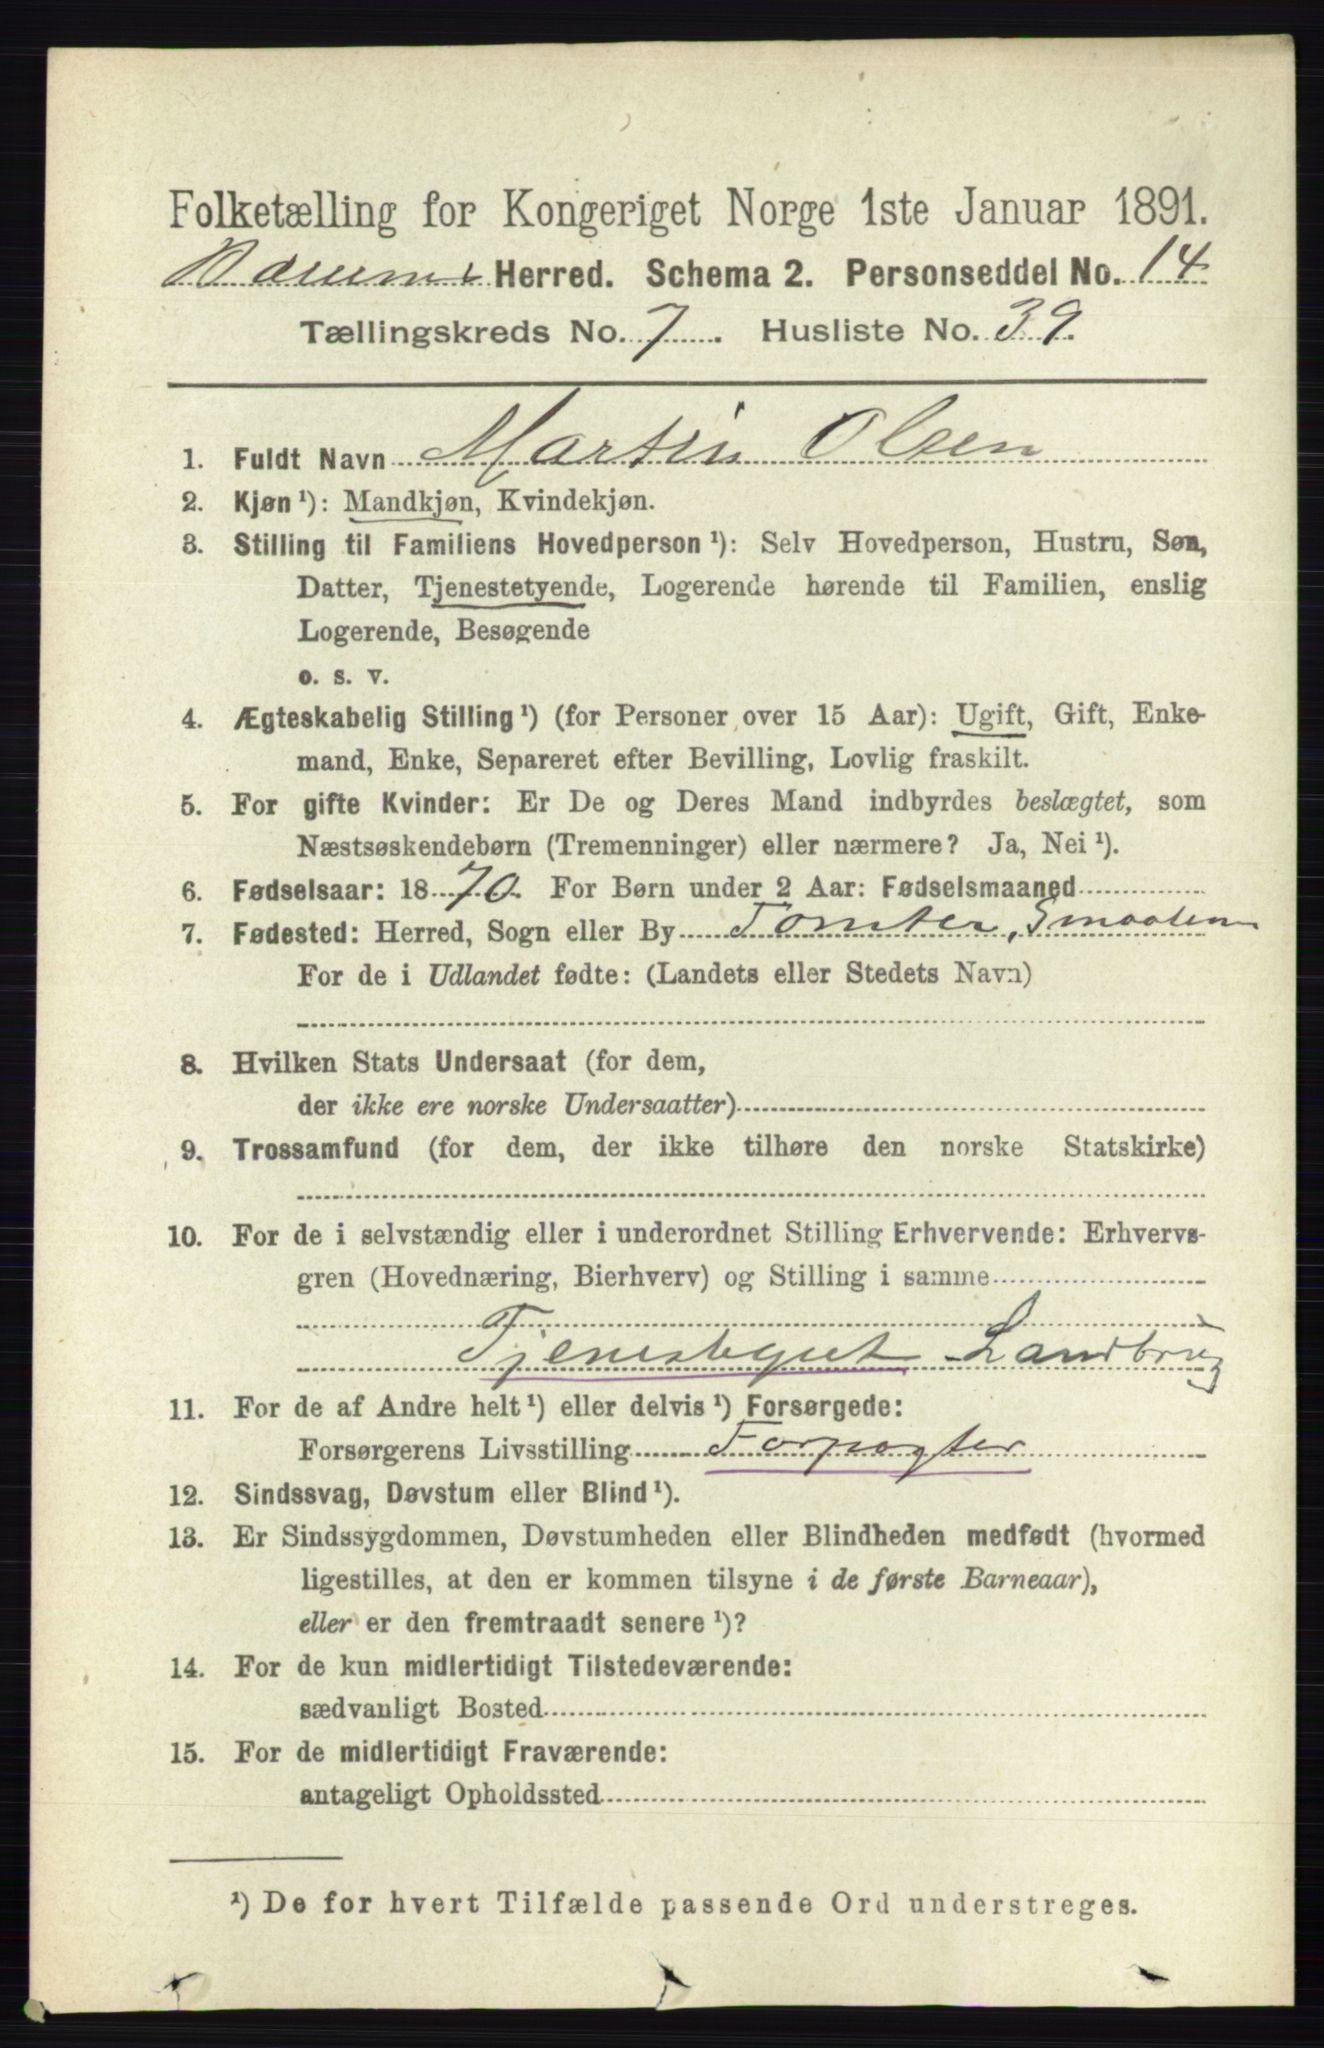 Folketælling for Kongeriget Norge 1ste Januar 1891.
Bærums Herred. Schema 2. Personseddel No. 14
Tællingskreds No. 7. Husliste No. 39.
1. Fuldt Navn Martin Olsen
2. Kjøn ¹): Mandkjøn, Kvindekjøn.
3. Stilling til Familiens Hovedperson ¹): Selv Hovedperson, Hustru, Søn,
Datter, Tjenestetyende, Logerende hørende til Familien, enslig
Logerende, Besøgende
o. s. v.
4. Ægteskabelig Stilling ¹) (for Personer over 15 Aar): Ugift, Gift, Enke-
mand, Enke, Separeret efter Bevilling, Lovlig fraskilt.
5. For gifte Kvinder: Er De og Deres Mand indbyrdes beslægtet, som
Næstsøskendebørn (Tremenninger) eller nærmere? Ja, Nei ¹).
6. Fødselsaar: 1870. For Børn under 2 Aar: Fødselsmaaned
7. Fødested: Herred, Sogn eller By Tomter, Smaalen
For de i Udlandet fødte: (Landets eller Stedets Navn)
8. Hvilken Stats Undersaat (for dem,
der ikke ere norske Undersaatter)
9. Trossamfund (for dem, der ikke tilhøre den norske Statskirke)
10. For de i selvstændig eller i underordnet Stilling Erhvervende: Erhvervs-
gren (Hovednæring, Bierhverv) og Stilling i samme
Tjenestegut Landbrug
11. For de af Andre helt ¹) eller delvis ¹) Forsørgede:
Forsørgerens Livsstilling Forpagter
12. Sindssvag, Døvstum eller Blind ¹).
13. Er Sindssygdommen, Døvstumheden eller Blindheden medfødt (hvormed
ligestilles, at den er kommen tilsyne i de første Barneaar),
eller er den fremtraadt senere ¹)?
14. For de kun midlertidigt Tilstedeværende:
sædvanligt Bosted
15. For de midlertidigt Fraværende:
antageligt Opholdssted
¹) De for hvert Tilfælde passende Ord understreges.